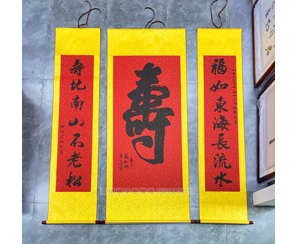 福如東海長流水
壽
壽比南山石老松